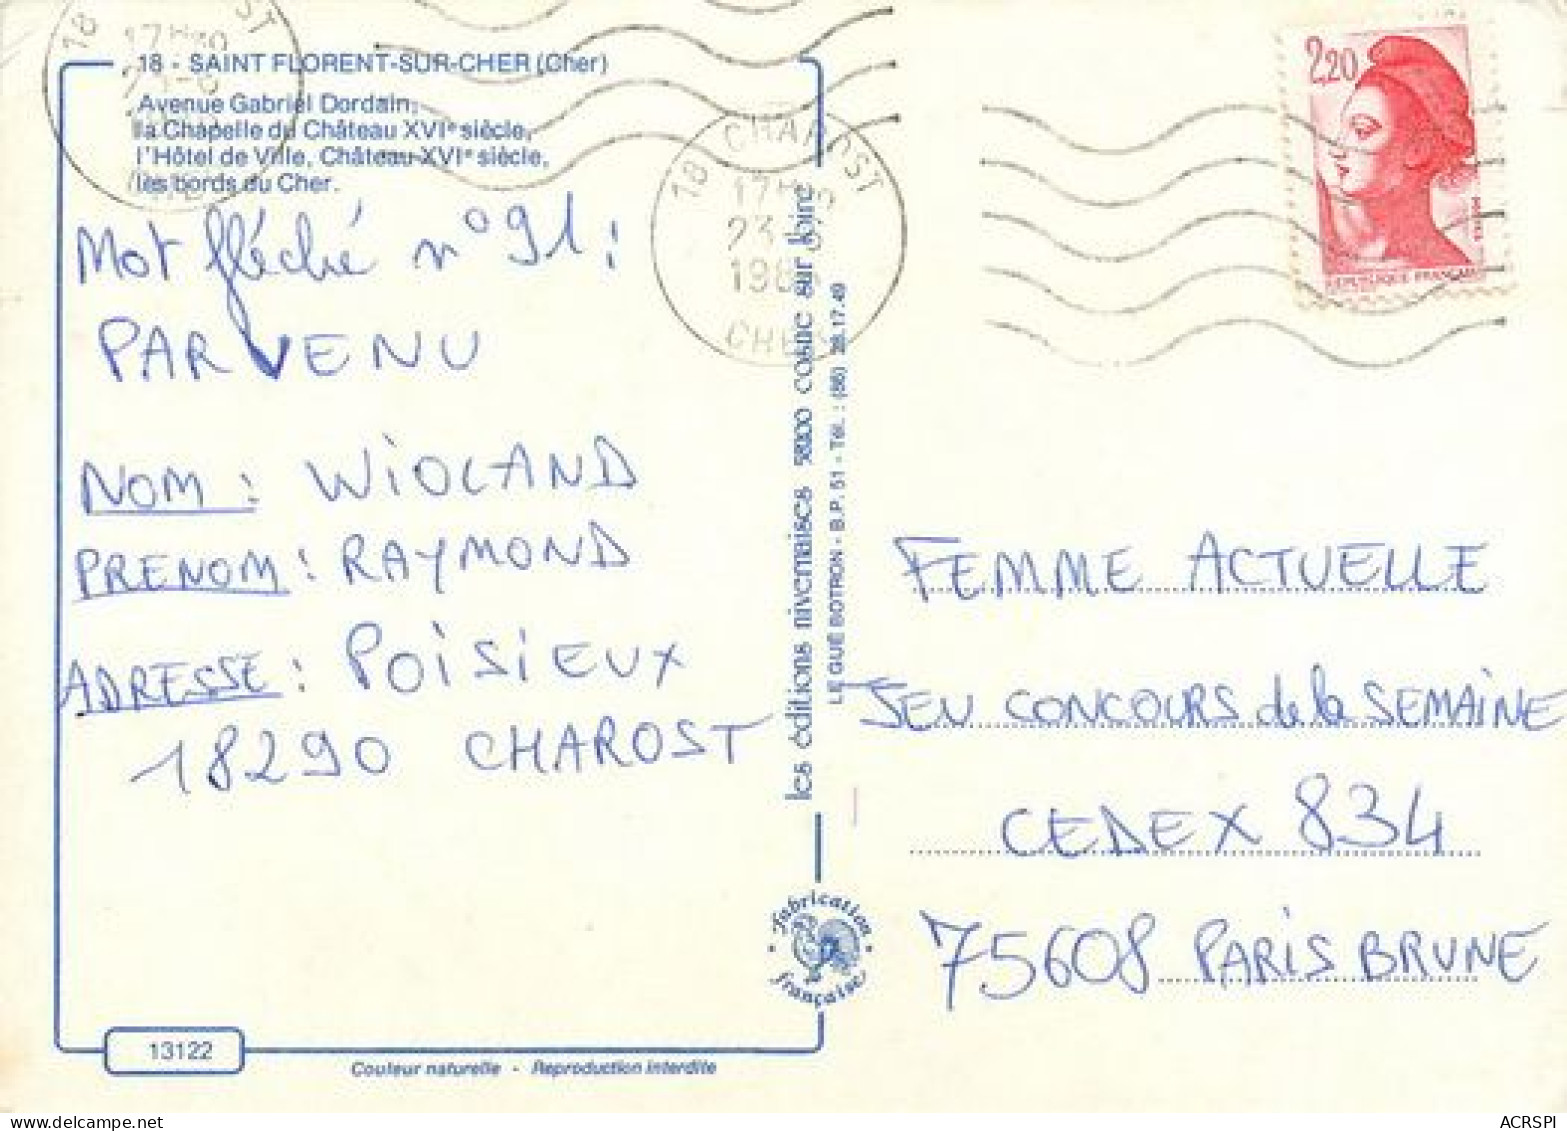 18 - SAINT FLORENT-SUR-CHER (Cher)
Avenue Gabriel Dordain,
la Chapelle du Château XVIe siècle,
l'Hôtel de Ville, Château XVIe siècle,
les bords du Cher.
Mot fléché n° 91 :
PARVENU
NOM : WIOLAND
PRENOM : RAYMOND
ADRESSE : POISIEUX
18290 CHAROST
18 CHAROST
17H30
23
CHER
les éditions nivernaises 58200 cosne sur loire
LE GUÉ BOTRON - B.P. 51 - Tél. : (86) 28.17.49
2,20
RÉPUBLIQUE FRANÇAISE
FEMME ACTUELLE
JEU CONCOURS de la SEMAINE
CEDEX 834
75608 PARIS BRUNE
fabrication
française
13122
Couleur naturelle - Reproduction interdite
ACRSPI